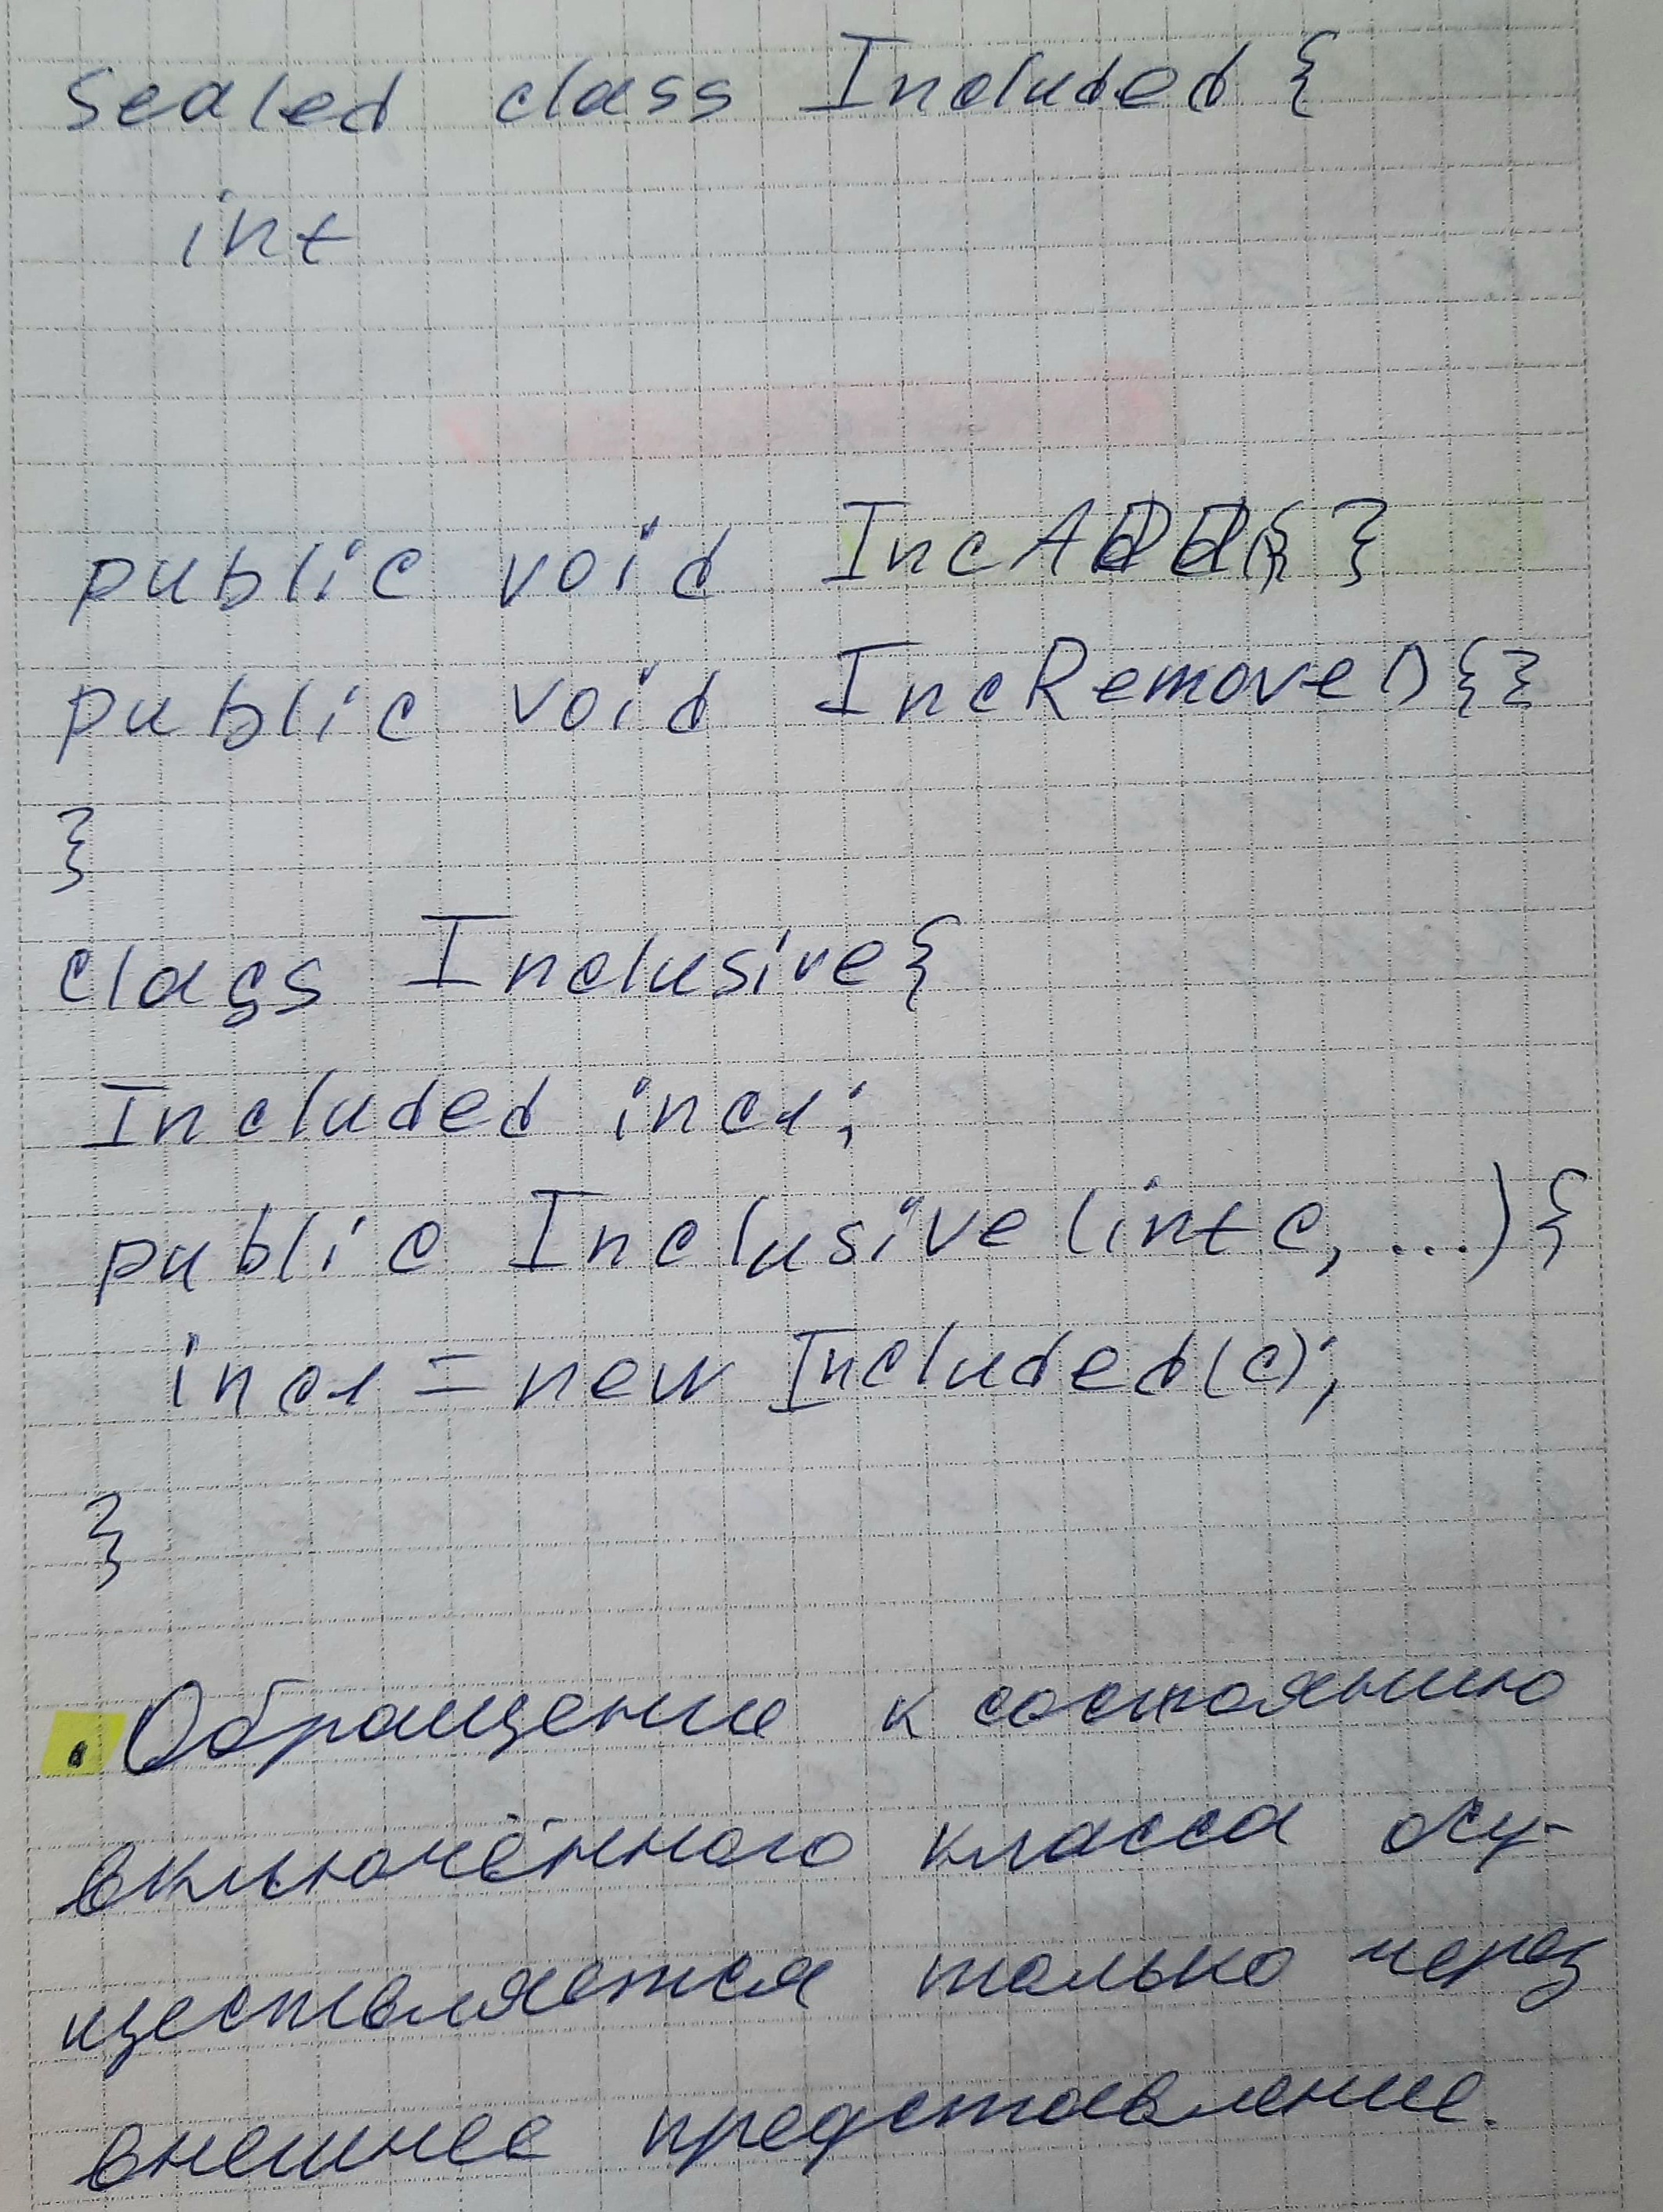 sealed class Included {
int
public void IncAdd(){}
public void IncRemove(){}
}
class Inclusive{
Included inc1;
public Inclusive(int c, ...){
inc1 = new Included(c);
}
• Обращение к состоянию
включённого класса осу-
ществляется только через
внешнее представление.